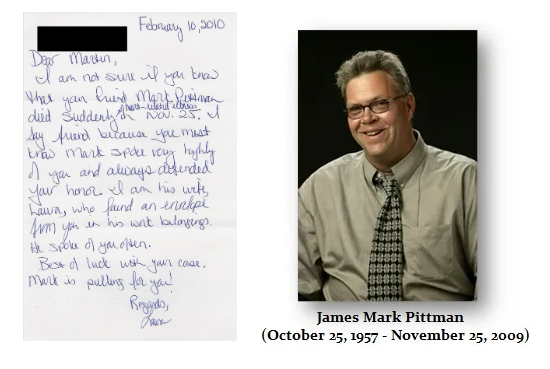 February 10, 2010
Dear Martin,
I am not sure if you know
that your friend Mark Pittman
died suddenly in Nov. 25. I
heart-related illness
say friend because you must
know Mark spoke very highly
of you and always defended
your honor. I am his wife,
Laura, who found an envelope
from you in his work belongings.
He spoke of you often.
Best of luck with your case.
Mark is pulling for you!
Regards,
Laura
James Mark Pittman
(October 25, 1957 - November 25, 2009)